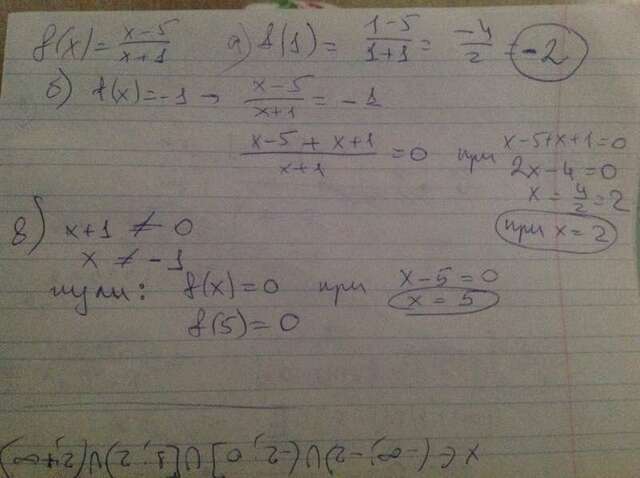 f(x) = (x-5)/(x+1) а) f(1) = (1-5)/(1+1) = -4/2 = -2
б) f(x) = -1 → (x-5)/(x+1) = -1
(x-5+x+1)/(x+1) = 0 при x-5+x+1=0
2x-4=0
x = 4/2 = 2
при x = 2
в) x+1 ≠ 0
x ≠ -1
нули: f(x)=0 при x-5=0
x=5
f(5)=0
x ∈ (-∞;-2)∪(-2;0]∪[1;2)∪(2;+∞)